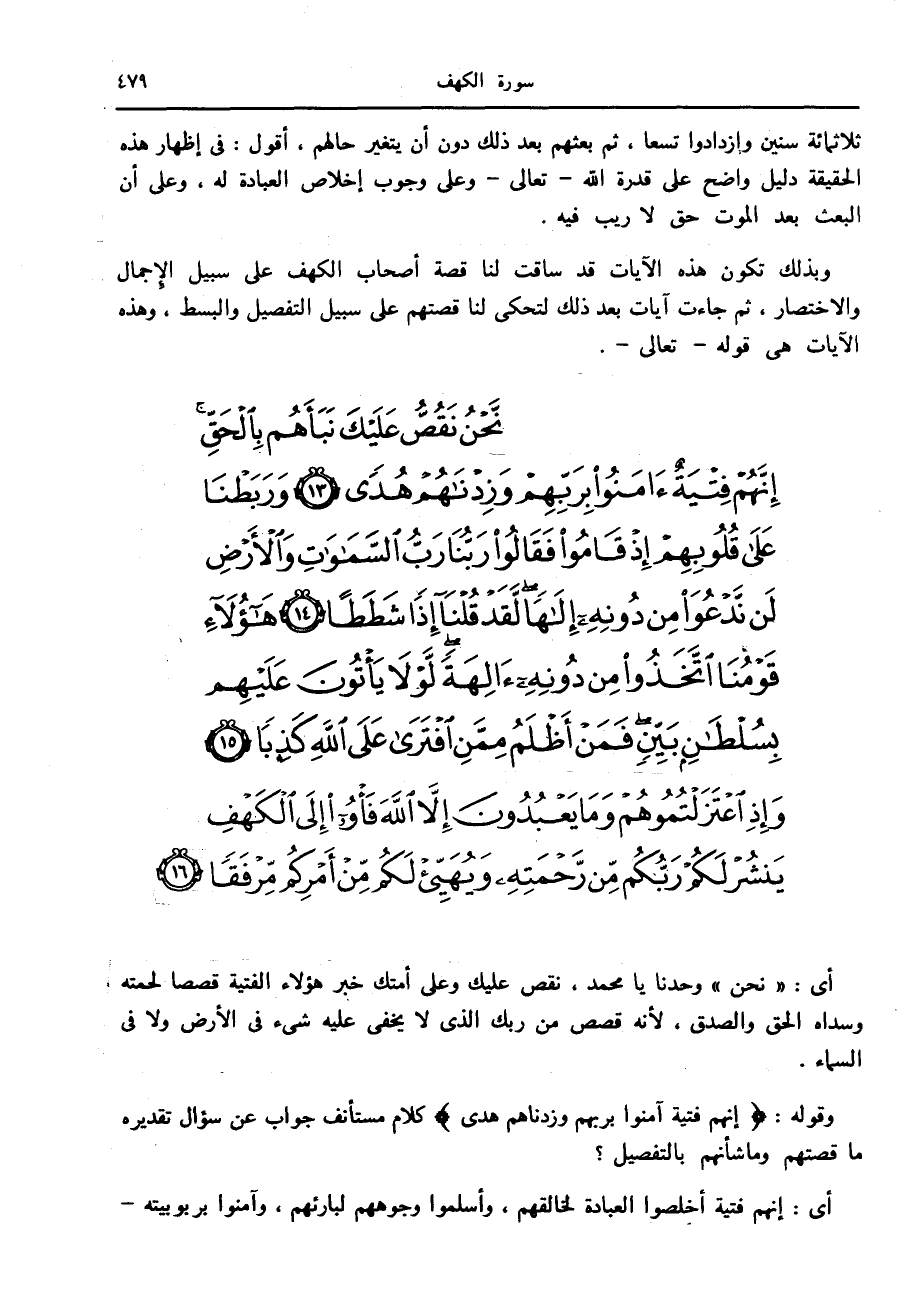 سورة الكهف ٤٧٩
ثلاثمائة سنين وإزدادوا تسعا ، ثم بعثهم بعد ذلك دون أن يتغير حالهم ، أقول : فى إظهار هذه
الحقيقة دليل واضح على قدرة الله – تعالى – وعلى وجوب إخلاص العبادة له ، وعلى أن
البعث بعد الموت حق لا ريب فيه .
وبذلك تكون هذه الآيات قد ساقت لنا قصة أصحاب الكهف على سبيل الإِجمال
والاختصار ، ثم جاءت آيات بعد ذلك لتحكى لنا قصتهم على سبيل التفصيل والبسط ، وهذه
الآيات هى قوله – تعالى – .
نَّحْنُ نَقُصُّ عَلَيْكَ نَبَأَهُم بِالْحَقِّ ۚ
إِنَّهُمْ فِتْيَةٌ ءَامَنُوا۟ بِرَبِّهِمْ وَزِدْنَـٰهُمْ هُدًى ۝١٣ وَرَبَطْنَا
عَلَىٰ قُلُوبِهِمْ إِذْ قَامُوا۟ فَقَالُوا۟ رَبُّنَا رَبُّ ٱلسَّمَـٰوَٰتِ وَٱلْأَرْضِ
لَن نَّدْعُوَا۟ مِن دُونِهِۦٓ إِلَـٰهًا ۖ لَّقَدْ قُلْنَآ إِذًا شَطَطًا ۝١٤ هَـٰٓؤُلَآءِ
قَوْمُنَا ٱتَّخَذُوا۟ مِن دُونِهِۦٓ ءَالِهَةً ۖ لَّوْلَا يَأْتُونَ عَلَيْهِم
بِسُلْطَـٰنٍۭ بَيِّنٍ ۖ فَمَنْ أَظْلَمُ مِمَّنِ ٱفْتَرَىٰ عَلَى ٱللَّهِ كَذِبًا ۝١٥
وَإِذِ ٱعْتَزَلْتُمُوهُمْ وَمَا يَعْبُدُونَ إِلَّا ٱللَّهَ فَأْوُۥٓا۟ إِلَى ٱلْكَهْفِ
يَنشُرْ لَكُمْ رَبُّكُم مِّن رَّحْمَتِهِۦ وَيُهَيِّئْ لَكُم مِّنْ أَمْرِكُم مِّرْفَقًا ۝١٦
أى : « نحن » وحدنا يا محمد ، نقص عليك وعلى أمتك خبر هؤلاء الفتية قصصا لحمته
وسداه الحق والصدق ، لأنه قصص من ربك الذى لا يخفى عليه شىء فى الأرض ولا فى
السماء .
وقوله : ﴿ إنهم فتية آمنوا بربهم وزدناهم هدى ﴾ كلام مستأنف جواب عن سؤال تقديره
ما قصتهم وماشأنهم بالتفصيل ؟
أى : إنهم فتية أخلصوا العبادة لخالقهم ، وأسلموا وجوههم لبارئهم ، وآمنوا بربوبيته –